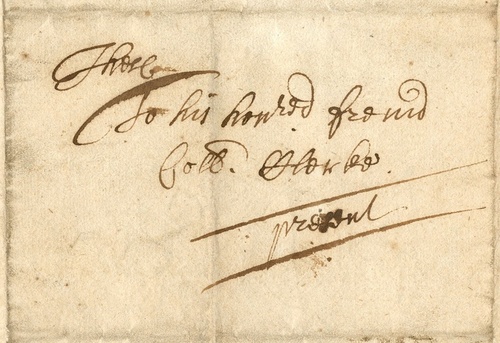 These
To his honred freind
Coll. Clerke.
present